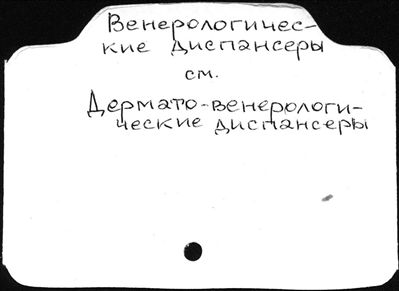 Венерологичес-
кие диспансеры
см.
Дермато-венерологи-
ческие диспансеры